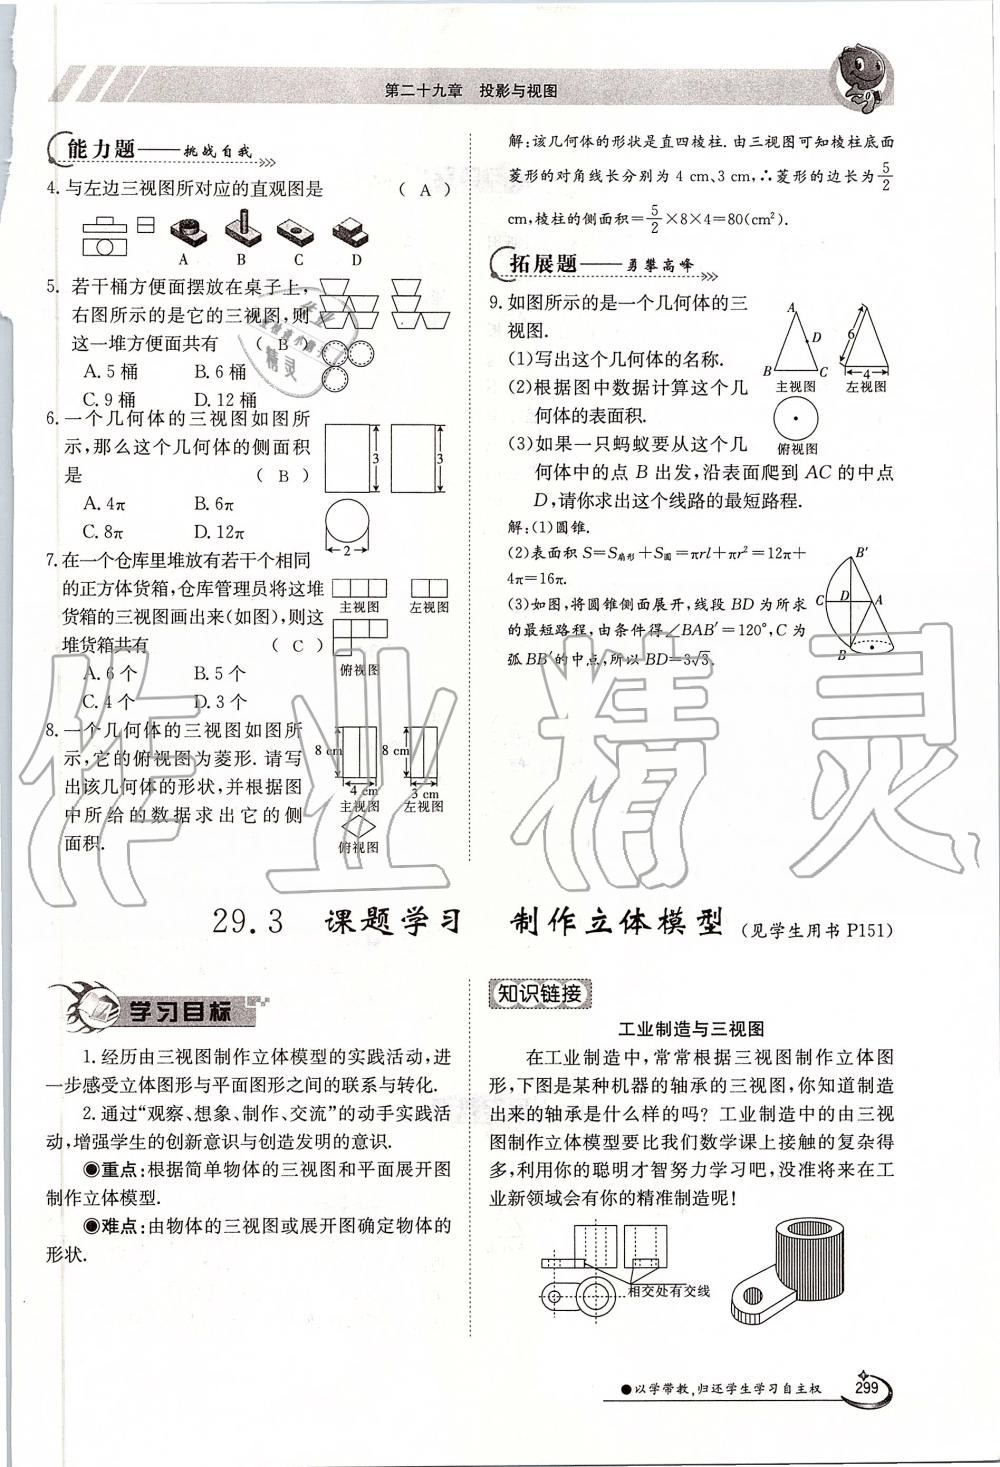 第二十九章 投影与视图
能力题——挑战自我
4. 与左边三视图所对应的直观图是 ( A )
A B C D
5. 若干桶方便面摆放在桌子上,
右图所示的是它的三视图,则
这一堆方便面共有 ( B )
A. 5 桶 B. 6 桶
C. 9 桶 D. 12 桶
6. 一个几何体的三视图如图所
示,那么这个几何体的侧面积
是 ( B )
A. 4π B. 6π
C. 8π D. 12π
3 3
2
7. 在一个仓库里堆放有若干个相同
的正方体货箱,仓库管理员将这堆
货箱的三视图画出来(如图),则这
堆货箱共有 ( C )
A. 6 个 B. 5 个
C. 4 个 D. 3 个
主视图 左视图
俯视图
8. 一个几何体的三视图如图所
示,它的俯视图为菱形. 请写
出该几何体的形状,并根据图
中所给的数据求出它的侧
面积.
8 cm 8 cm
4 cm 3 cm
主视图 左视图
俯视图
解:该几何体的形状是直四棱柱. 由三视图可知棱柱底面
菱形的对角线长分别为 4 cm、3 cm,∴菱形的边长为 5/2
cm,棱柱的侧面积= 5/2 ×8×4=80(cm²).
拓展题——勇攀高峰
9. 如图所示的是一个几何体的三
视图.
(1)写出这个几何体的名称.
(2)根据图中数据计算这个几
何体的表面积.
(3)如果一只蚂蚁要从这个几
何体中的点 B 出发,沿表面爬到 AC 的中点
D,请你求出这个线路的最短路程.
A
D
B C
6
4
主视图 左视图
俯视图
解:(1)圆锥.
(2)表面积 S=S扇形+S圆=πrl+πr²=12π+
4π=16π.
(3)如图,将圆锥侧面展开,线段 BD 为所求
的最短路程,由条件得∠BAB′=120°,C 为
弧 BB′的中点,所以 BD=3√3.
B′
C D A
B
29.3 课题学习 制作立体模型 (见学生用书 P151)
学习目标
1. 经历由三视图制作立体模型的实践活动,进
一步感受立体图形与平面图形之间的联系与转化.
2. 通过“观察、想象、制作、交流”的动手实践活
动,增强学生的创新意识与创造发明的意识.
●重点:根据简单物体的三视图和平面展开图
制作立体模型.
●难点:由物体的三视图或展开图确定物体的
形状.
知识链接
工业制造与三视图
在工业制造中,常常根据三视图制作立体图
形,下图是某种机器的轴承的三视图,你知道制造
出来的轴承是什么样的吗? 工业制造中的由三视
图制作立体模型要比我们数学课上接触的复杂得
多,利用你的聪明才智努力学习吧,没准将来在工
业新领域会有你的精准制造呢!
相交处有交线
●以学带教,归还学生学习自主权
299
作业精灵